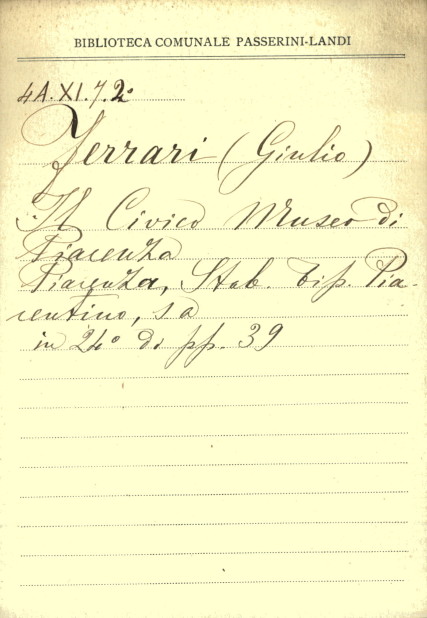 BIBLIOTECA COMUNALE PASSERINI-LANDI
4A.XI.7.2°
Ferrari (Giulio)
Il Civico Museo di
Piacenza
Piacenza, Stab. tip. Pia-
centino, s a
in 24° di pp. 39